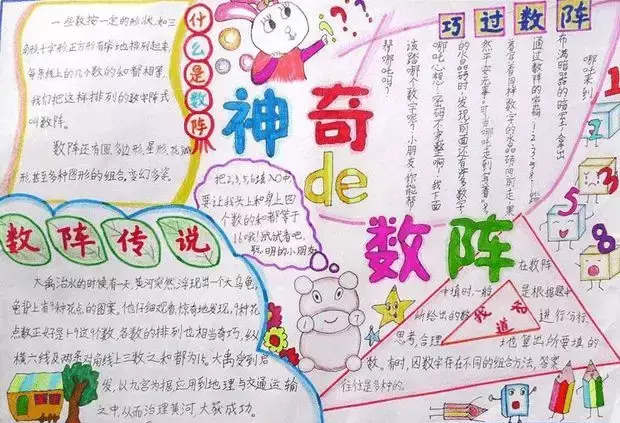 一些数按一定的形状,如三
角形、十字形、正方形有序地排列起来,
每条线上的几个数的和都相等,
我们把这样排列的数字阵式
叫数阵。
数阵还有圆、多边形、星形、花瓣
形,甚至多种图形的组合,变幻多姿。
什么是数阵
神奇
de
数阵
巧过数阵
哪吒来到
布满暗器的暗室,拿出
通过数阵的密码
着写着同样数字的水晶砖向前走,果
然平安无事。可当哪吒走到写着"8"
的水晶砖时,发现前面还有许多数字
哪吒心想:密码不完整啊!我下面
该踏哪个数字呢?小朋友,你能帮
帮哪吒吗?
1
3
5
8
把2,3,5,6填入○中,
要让我头上和身上四
个数的和都等于
16哦!试试看吧,
聪明的小朋友
数阵传说
大禹治水的时候有一天,黄河突然浮现出一个大乌龟,
龟背上有9种花点的图案。他仔细观看,惊奇地发现,9种花
点数正好是1~9这个数,各数的排列也相当奇巧,纵
横六线及两条对角线上三数之和都为15。大禹受到启
发,以九宫为据应用到地理与交通运输
之中,从而治理黄河大获成功。
我知道
在数阵
中填时,一般是根据题中
所给出的数进行分行、
思考,合理地算出所要填的
数。有时,因数字存在不同的组合方法,答案
往往是多种的。